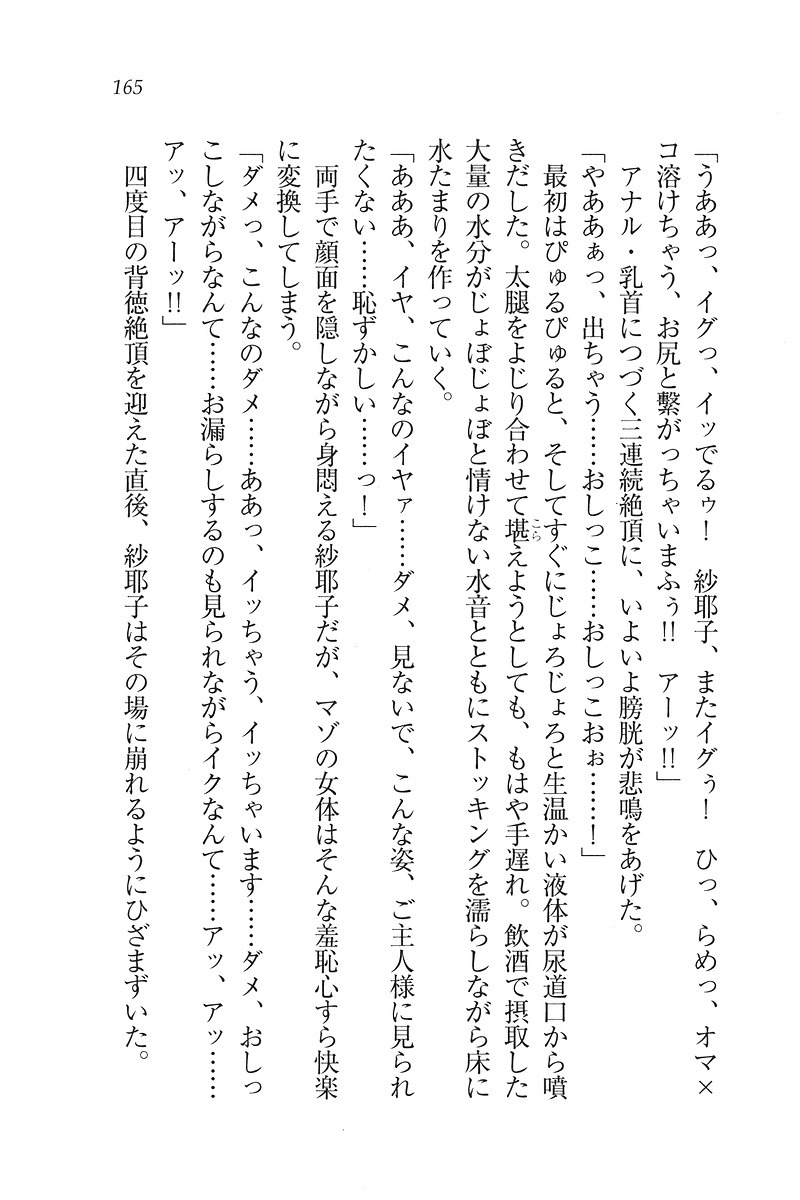 165
「うああっ、イグっ、イッでるゥ！　紗耶子、またイグぅ！　ひっ、らめっ、オマ×
コ溶けちゃう、お尻と繋がっちゃいまふぅ!!　アーッ!!」
アナル・乳首につづく三連続絶頂に、いよいよ膀胱が悲鳴をあげた。
「やああぁっ、出ちゃう……おしっこ……おしっこおぉ……！」
最初はぴゅるぴゅると、そしてすぐにじょろじょろと生温かい液体が尿道口から噴
きだした。太腿をよじり合わせて堪えようとしても、もはや手遅れ。飲酒で摂取した
大量の水分がじょぼじょぼと情けない水音とともにストッキングを濡らしながら床に
水たまりを作っていく。
「あああ、イヤ、こんなのイヤァ……ダメ、見ないで、こんな姿、ご主人様に見られ
たくない……恥ずかしい……っ！」
両手で顔面を隠しながら身悶える紗耶子だが、マゾの女体はそんな羞恥心すら快楽
に変換してしまう。
「ダメっ、こんなのダメ……ああっ、イッちゃう、イッちゃいます……ダメ、おしっ
こしながらなんて……お漏らしするのも見られながらイクなんて……アッ、アッ……
アッ、アーッ!!」
四度目の背徳絶頂を迎えた直後、紗耶子はその場に崩れるようにひざまずいた。
こら